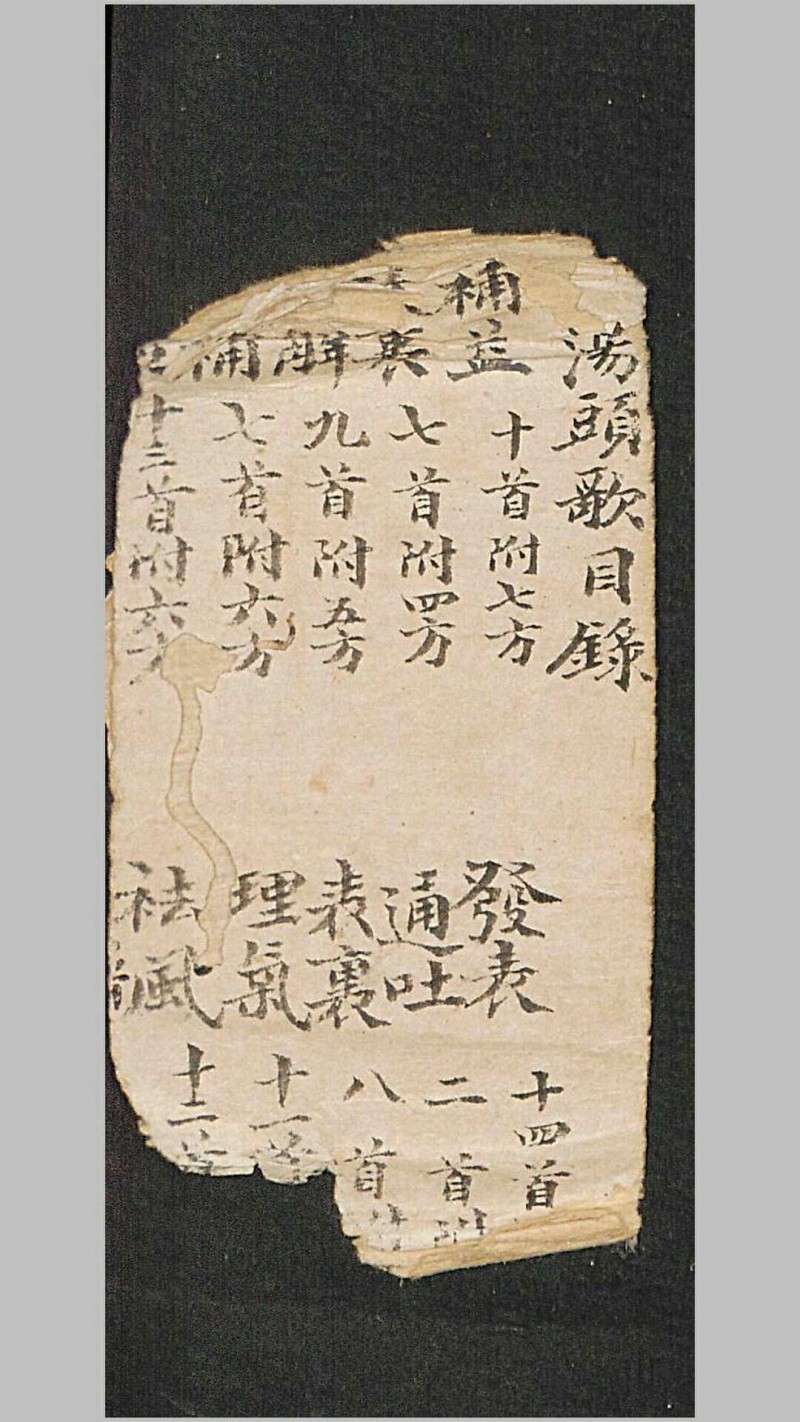 湯頭歌目錄
補益 十首附七方
發表 十四首
裏 七首附四方
通吐 二首附
解 九首附五方
表裏 八首附
補 七首附六方
理氣 十一首
十三首附六方
祛風 十二首
首